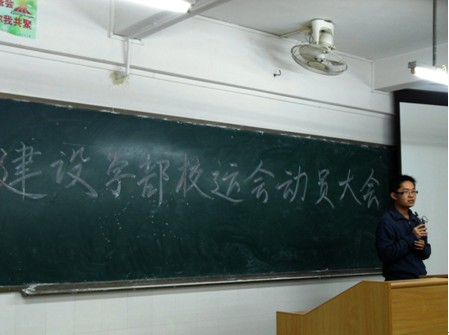 你我共聚
建设学部校运会动员大会